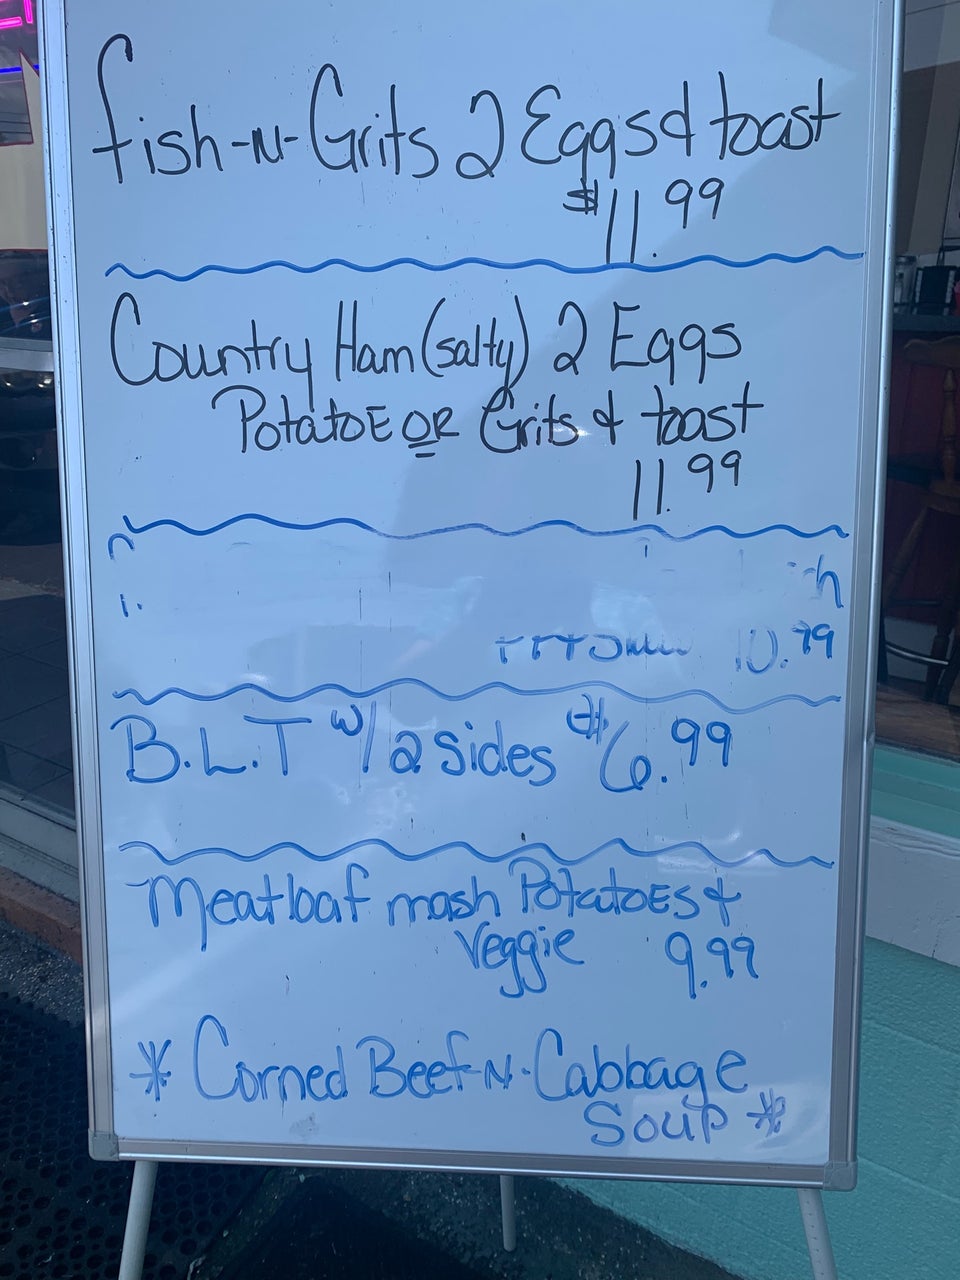 fish-N-Grits 2 Eggs & toast
$11.99
Country Ham (salty) 2 Eggs
PotatoE OR Grits & toast
11.99
10.99
B.L.T w/ 2 sides $6.99
Meatloaf mash PotatoEs &
Veggie 9.99
* Corned Beef-N-Cabbage
Soup *